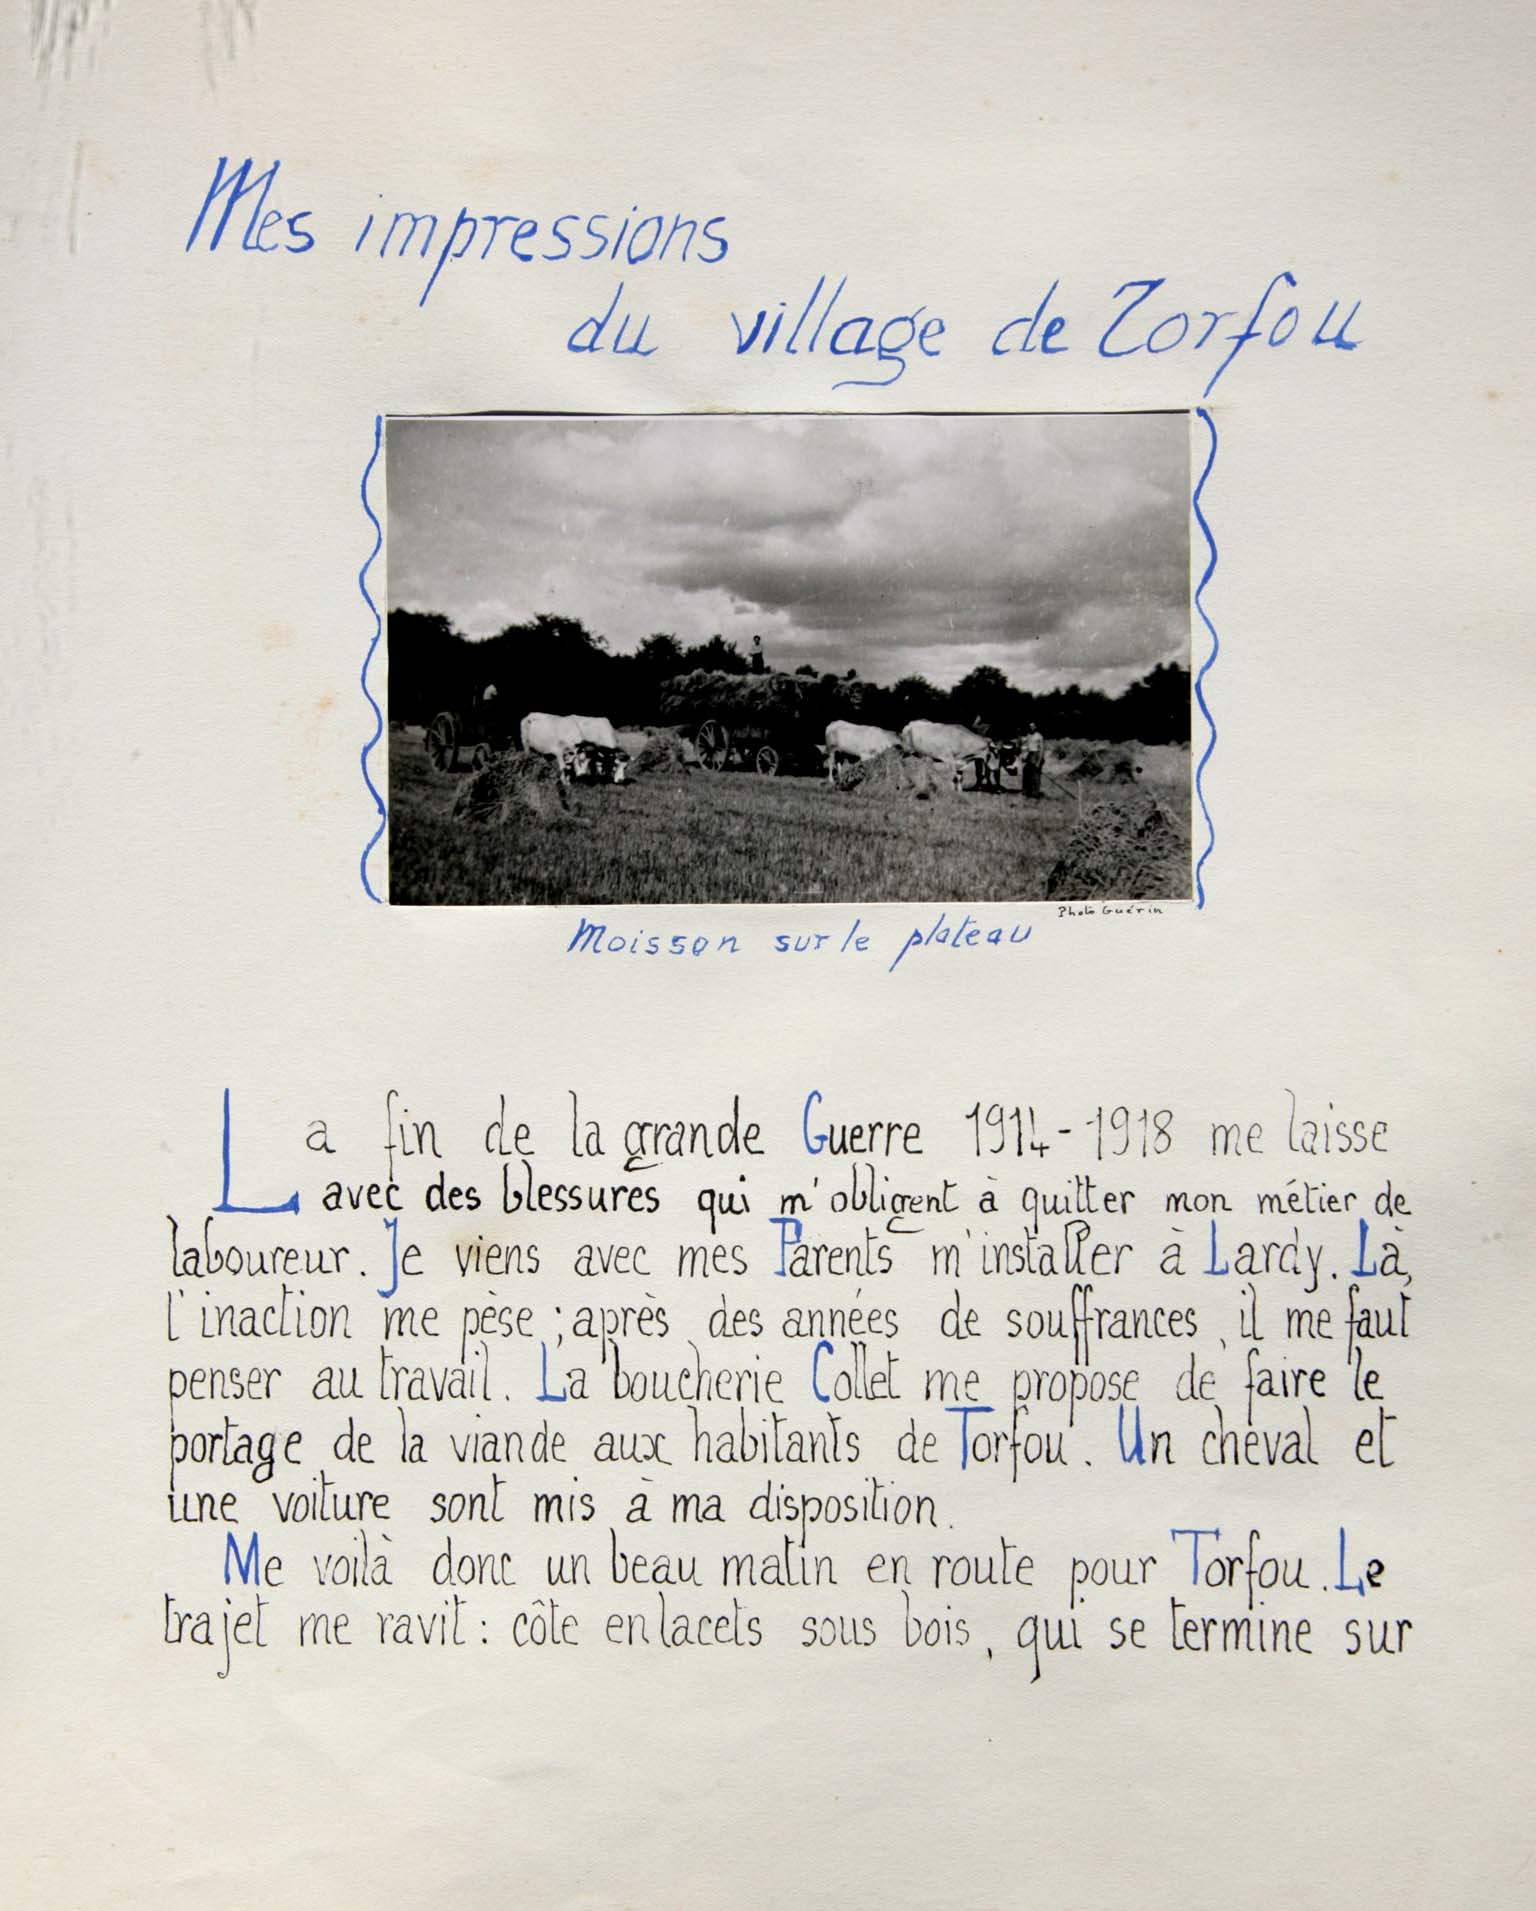 Mes impressions
du village de Torfou
Photo Guérin
Moisson sur le plateau
La fin de la grande Guerre 1914-1918 me laisse
avec des blessures qui m'obligent à quitter mon métier de
laboureur. Je viens avec mes Parents m'installer à Lardy. Là,
l'inaction me pèse ; après des années de souffrances, il me faut
penser au travail. La boucherie Collet me propose de faire le
portage de la viande aux habitants de Torfou. Un cheval et
une voiture sont mis à ma disposition.
Me voilà donc un beau matin en route pour Torfou. Le
trajet me ravit : côte en lacets sous bois, qui se termine sur